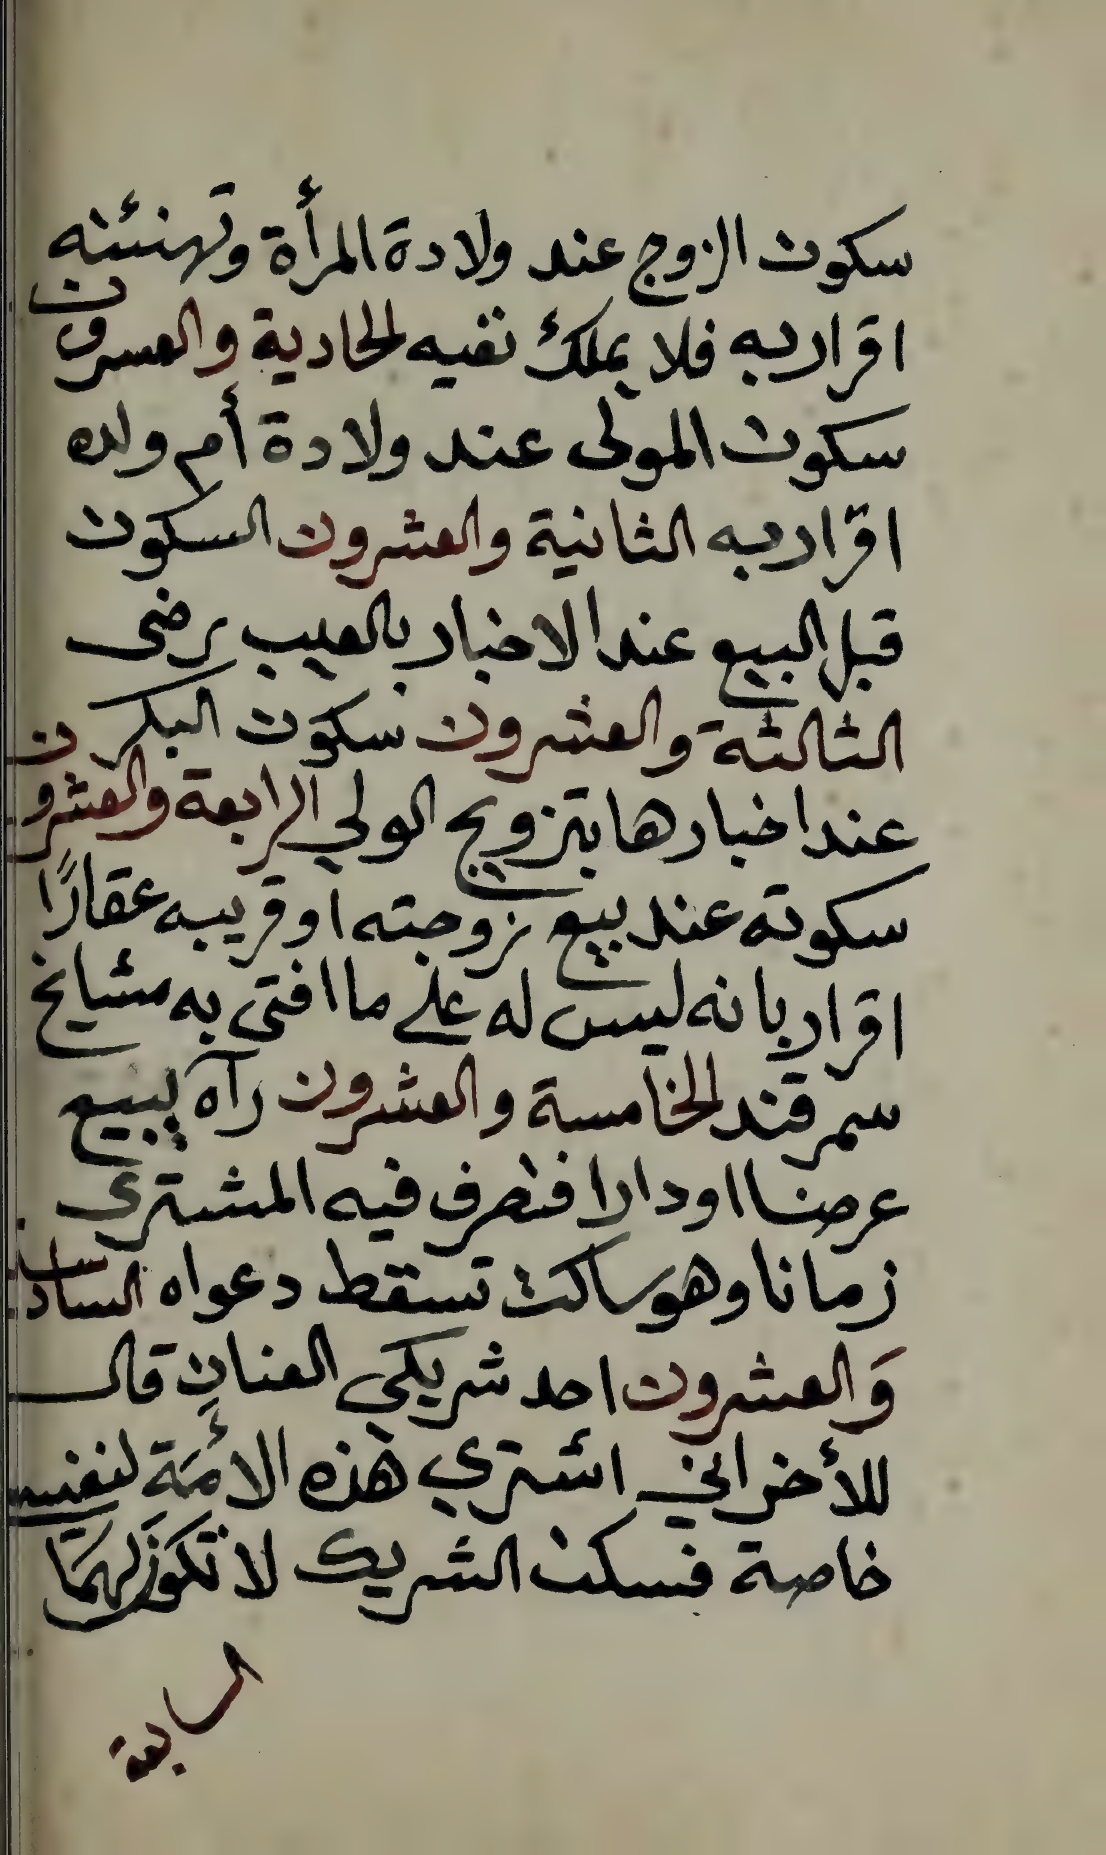 سكوت الزوج عند ولادة المرأة وتهنئته
اقرار به فلا يملك نفيه الحادية والعشرون
سكوت المولى عند ولادة أم ولده
اقرار به الثانية والعشرون السكوت
قبل البيع عند الاخبار بالعيب رضى
الثالثة والعشرون سكوت البكر
عند اخبارها بتزويج الولي الرابعة والعشرون
سكوته عند بيع زوجته او قريبه عقارًا
اقرار بانه ليس له على ما افتى به مشايخ
سمرقند الخامسة والعشرون رآه يبيع
عرضا او دارا فتصرف فيه المشتري
زمانا وهو ساكت تسقط دعواه السادسة
وَالعشرون احد شريكي العنان قال
للأخر اني اشتري هذه الأمَة لنفسي
خاصة فسكت الشريك لا تكون لهمَا
السابعة